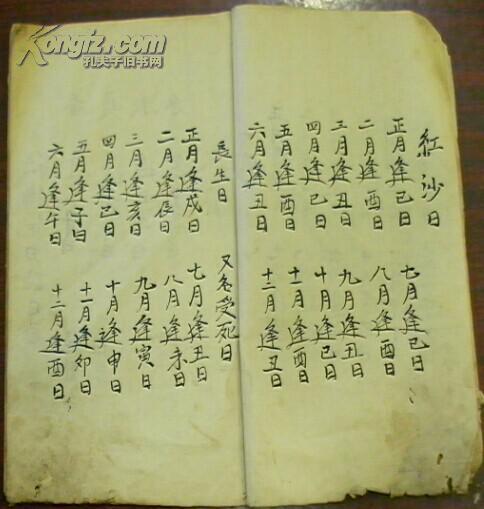 紅沙日
正月逢巳日 七月逢巳日
二月逢酉日 八月逢酉日
三月逢丑日 九月逢丑日
四月逢巳日 十月逢巳日
五月逢酉日 十一月逢酉日
六月逢丑日 十二月逢丑日
長生日 又名受死日
正月逢戌日 七月逢丑日
二月逢辰日 八月逢未日
三月逢亥日 九月逢寅日
四月逢巳日 十月逢申日
五月逢子日 十一月逢卯日
六月逢午日 十二月逢酉日
Kongfz.com
孔夫子旧书网